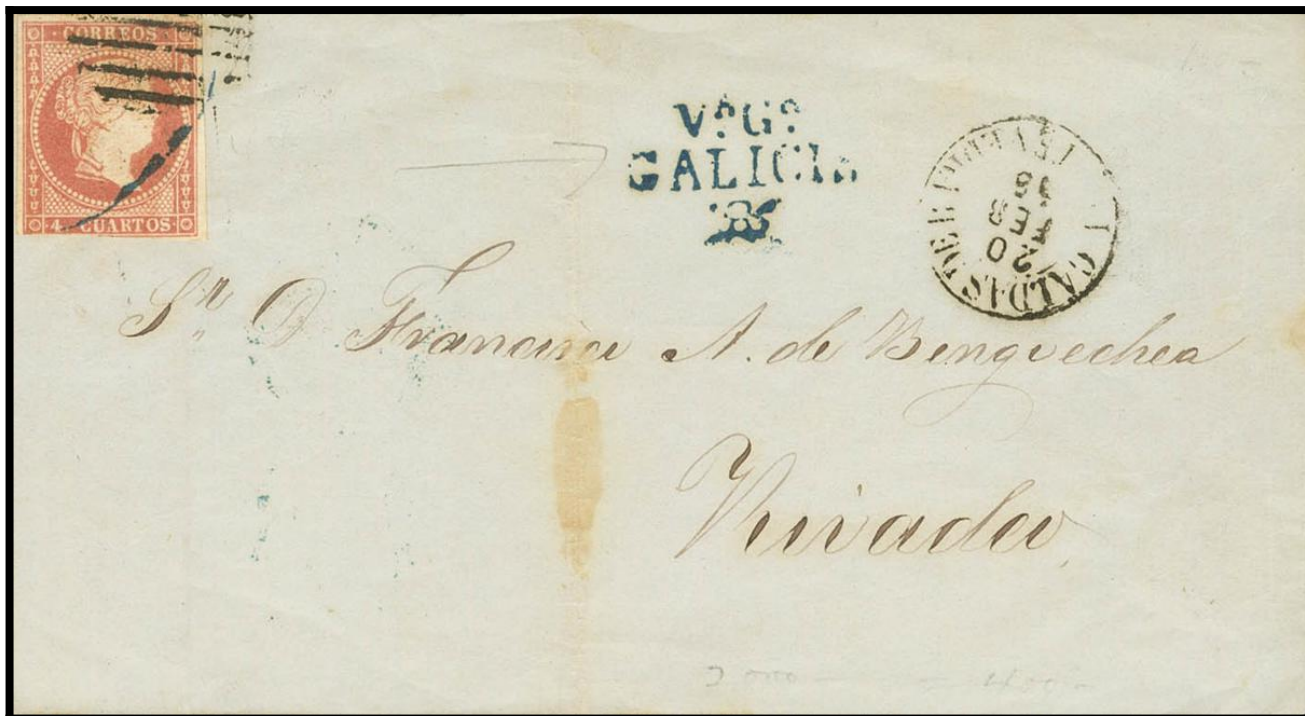 CORREOS
4 CUARTOS
GALICIA
CALDAS DE
20
FEB
Sr. D. Francisco A. de Bengoechea
Rivadeo